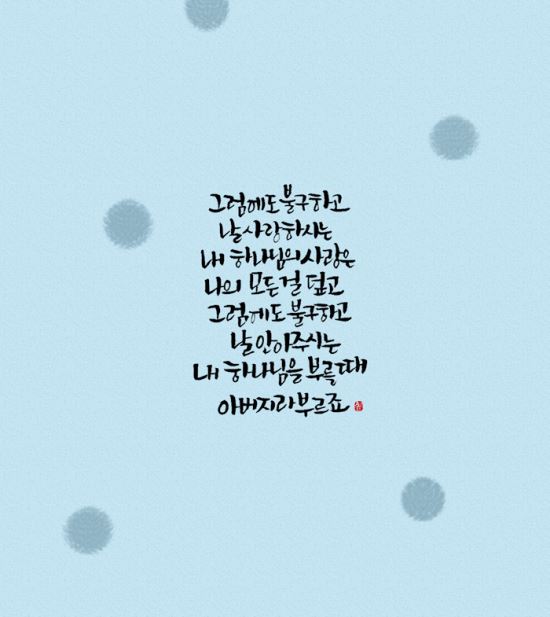 그럼에도불구하고
날사랑하시는
내 하나님의사랑은
나의 모든걸 덮고
그럼에도 불구하고
날안아주시는
내 하나님을 부를때
아버지라부르죠